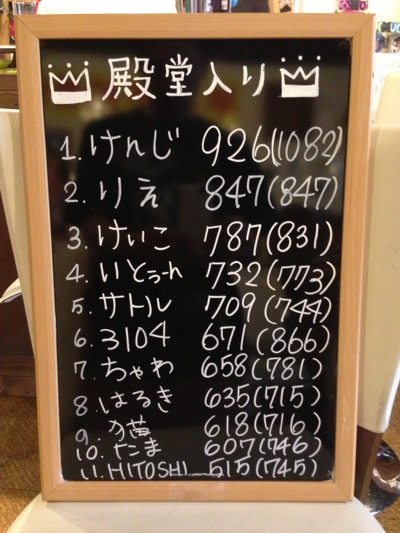 殿堂入り
1. けんじ 926(1082)
2. りえ 847(847)
3. けいこ 787(831)
4. いとぅーん 732(773)
5. サトル 709(744)
6. 3104 671(866)
7. ちゃわ 658(781)
8. はるき 635(715)
9. 618(716)
10. たま 607(746)
11. HITOSHI 515(745)